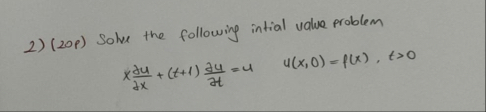 2) (20p) Solve the following intial value problem
x ∂u/∂x + (t+1) ∂u/∂t = u   u(x,0) = f(x) , t>0